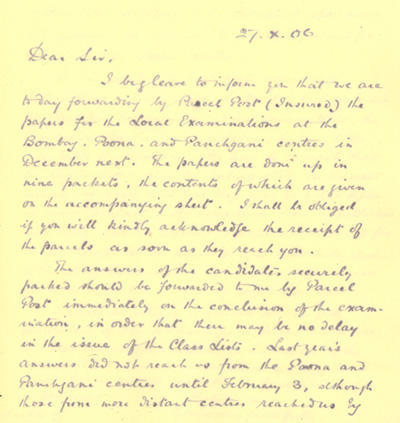 27. X. 06
Dear Sir,
I beg leave to inform you that we are
to day forwarding by Parcel Post (Insured) the
papers for the Local Examinations at the
Bombay, Poona, and Panchgani centres in
December next. The papers are done up in
nine packets, the contents of which are given
on the accompanying sheet. I shall be obliged
if you will kindly acknowledge the receipt of
the parcels as soon as they reach you.
The answers of the candidates securely
packed should be forwarded to me by Parcel
Post immediately on the conclusion of the exam-
ination, in order that there may be no delay
in the issue of the Class Lists. Last year's
answers did not reach us from the Poona and
Panchgani centres until February 3, although
those from more distant centres reached us by